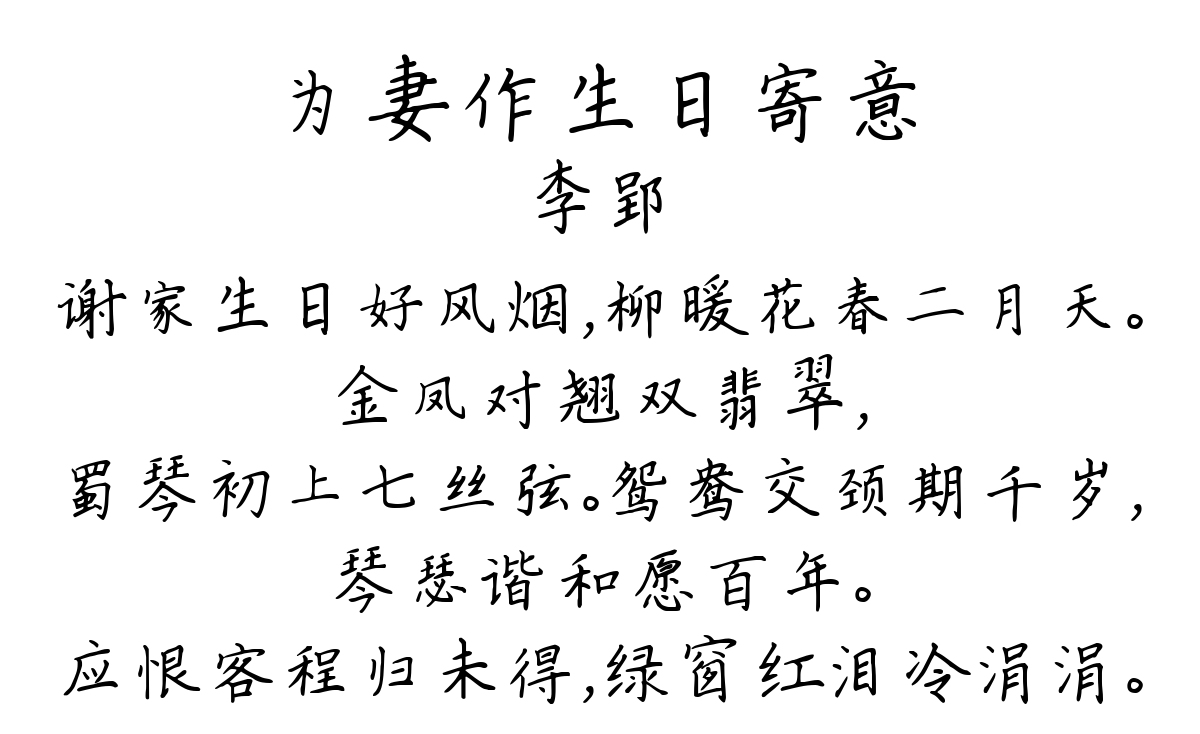 为妻作生日寄意
李郢
谢家生日好风烟,柳暖花春二月天。
金凤对翘双翡翠,
蜀琴初上七丝弦。鸳鸯交颈期千岁,
琴瑟谐和愿百年。
应恨客程归未得,绿窗红泪冷涓涓。